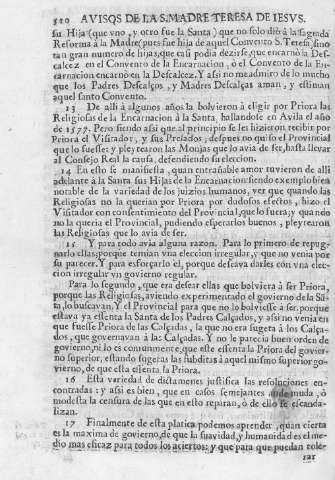 510 AVISOS DE LA S. MADRE TERESA DE IESVS.
su Hija (que vno, y otro fue la Santa) que no solo diò à la sagrada
Reforma à la Madre, pues fue hija de aquel Convento S. Teresa, sino
tan gran numero de hijas, que casi podia dezirse, que encarnò la Des-
calcez en el Convento de la Encarnacion, ò el Convento de la En-
carnacion encarnò en la Descalcez. Y assi no me admiro de lo mucho
que los Padres Descalços, y Madres Descalças aman, y estiman
aquel santo Convento.
13 De alli à algunos años la bolvieron à eligir por Priora las
Religiosas de la Encarnacion à la Santa, hallandose en Avila el año
de 1577. Pero siendo assi que al principio se les hizieron recibir por
Priora el Visitador, y sus Prelados, despues no quiso el Provincial
que lo fuesse: y pleytearon las Monjas que lo avia de ser, hasta llevar
al Consejo Real la causa, defendiendo su eleccion.
14 En esto se manifiesta, quan entrañable amor tuvieron de alli
adelante à la Santa sus Hijas de la Encarnacion: siendo exemplo bien
notable de la variedad de los juizios humanos, ver que quando las
Religiosas no la querian por Priora por dudosos efectos, hizo el
Visitador con consentimiento del Provincial, que lo fuera; y quando
no la queria el Provincial, pudiendo esperarlos buenos, pleytearon
las Religiosas que lo avia de ser.
15 Y para todo avia alguna razon. Para lo primero de repug-
narlo ellas; porque temian vna eleccion irregular, y que no venia por
su parecer. Y para esforçarlo èl, porque deseava darles con vna elec-
cion irregular vn govierno regular.
Para lo segundo, que era desear ellas que bolviera à ser Priora,
porque las Religiosas, aviendo experimentado el govierno de la Sã-
ta, lo buscavan. Y el Provincial para que no lo bolviesse à ser, porque
estava ya essenta la Santa de los Padres Calçados, y assi no venia en
que fuesse Priora de las Calçadas, la que no era sugeta à los Calça-
dos, que governavan a la: Calçadas. Y no le parecia buen orden de
govierno, ni lo es comunmente, que este essenta la Priora del govier-
no superior, estando sugetas las subditas à aquel mismo superior go-
vierno, de que esta essenta la Priora.
16 Esta variedad de dictamenes justifica las resoluciones en-
contradas: y assi es bien, que en casos semejantes muda, ò
modesta la censura de las que en esto reparan, ò de ello se escanda-
lizan.
17 Finalmente de esta platica podemos aprender, quan cierta
es la maxima de govierno, de que la suavidad, y humanidad es el me-
dio mas eficaz para todos los aciertos; y que para que puedan role-
rar